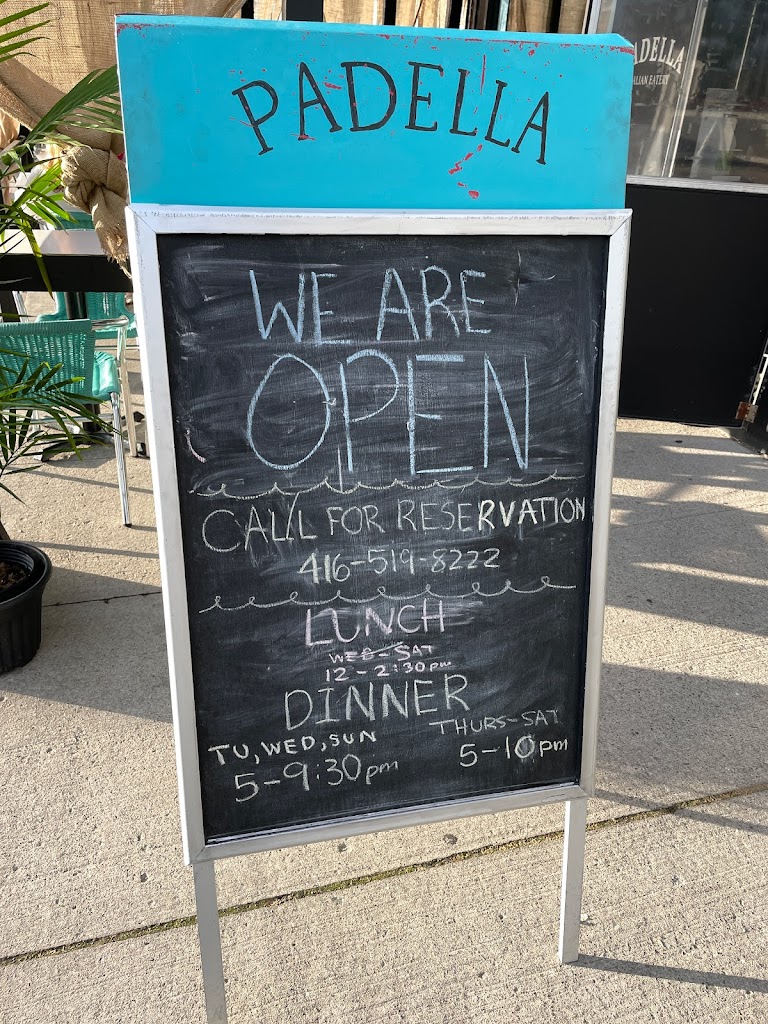 PADELLA
WE ARE
OPEN
CALL FOR RESERVATION
416-519-8222
LUNCH
WED-SAT
12-2:30pm
DINNER
TU, WED, SUN
5-9:30pm
THURS-SAT
5-10pm
PADELLA
ITALIAN EATERY